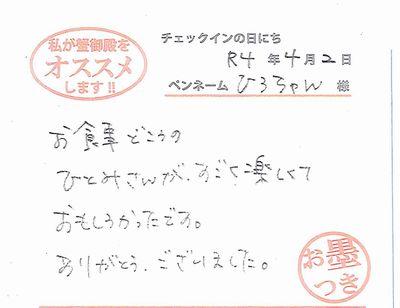 私が蟹御殿を
オススメ
します!!
チェックインの日にち
R4 年 4 月 2 日
ペンネーム ひろちゃん 様
お食事どころの
ひとみさんが、すごく楽しくて
おもしろかったです。
ありがとう、ございました。
お墨
つき